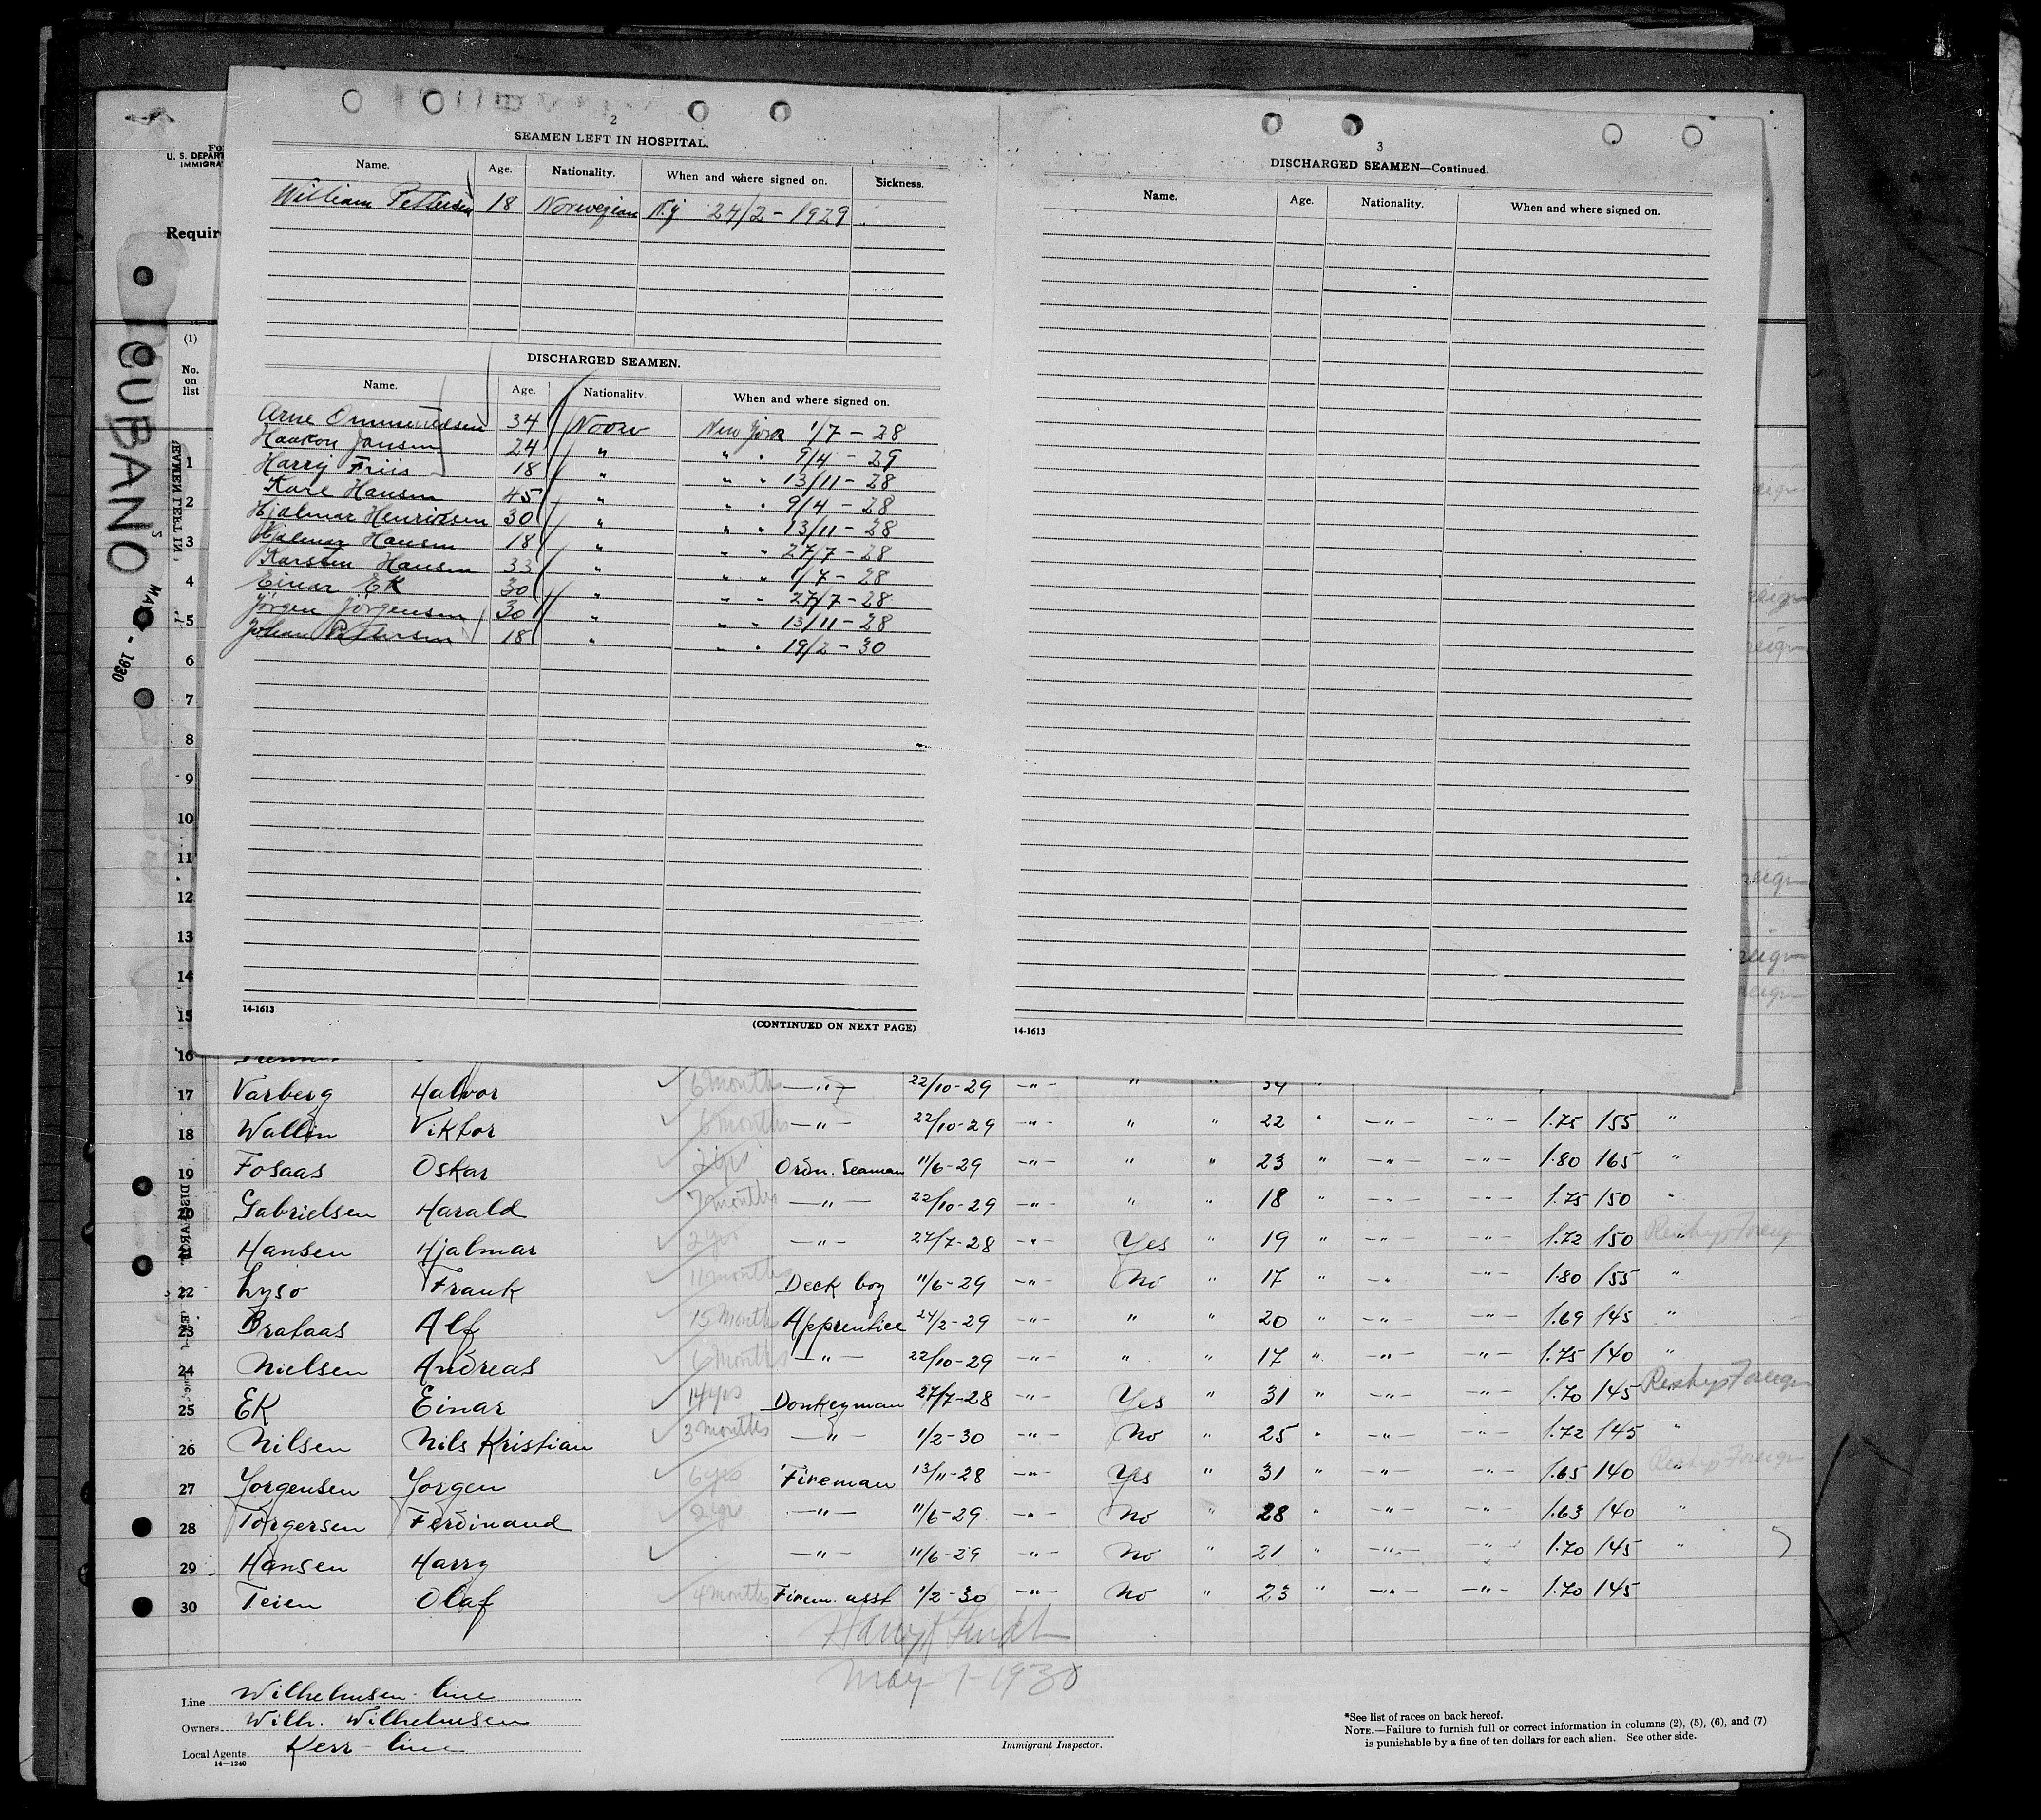 2
SEAMEN LEFT IN HOSPITAL.
Name. Age. Nationality. When and where signed on. Sickness.
William Pettersen 18 Norwegian N.y 24/2 - 1929
DISCHARGED SEAMEN.
Name. Age. Nationality. When and where signed on.
Arne Ommundsen 34 Norw New York 1/7 - 28
Haakon Jansen 24 " " " 9/4 - 29
Harry Friis 18 " " " 13/11 - 28
Kare Hansen 45 " " " 9/4 - 28
Hjalmar Henriksen 30 " " " 13/11 - 28
Hjalmar Hansen 18 " " " 27/7 - 28
Karsten Hansen 33 " " " 1/7 - 28
Einar Ek 30 " " " 27/7 - 28
Jörgen Jörgensen 30 " " " 13/11 - 28
Johan Pettersen 18 " " " 19/2 - 30
14-1613
(CONTINUED ON NEXT PAGE)
3
DISCHARGED SEAMEN—Continued.
Name. Age. Nationality. When and where signed on.
14-1613
Fo
U. S. DEPART
IMMIGRA
Requir
CUBANO
MAY - 1930
(1)
No.
on
list
1
2
3
4
5
6
7
8
9
10
11
12
13
14
15
16
17 Varberg Halvor 6 months —"— 22/10-29 —"— " "
18 Wallin Viktor 6 months —"— 22/10-29 —"— " " 22 " —"— —"— 1.75 155 "
19 Fosaas Oskar 2 yrs Ordn. Seaman 11/6-29 —"— " " 23 " —"— —"— 1.80 165 "
20 Gabrielsen Harald 7 months —"— 22/10-29 —"— " " 18 " —"— —"— 1.75 150 "
21 Hansen Hjalmar 2 yrs —"— 27/7-28 —"— Yes " 19 " —"— —"— 1.72 150 Reship Foreign
22 Lyso Frank 11 months Deck boy 11/6-29 —"— No " 17 " —"— —"— 1.80 155 "
23 Brataas Alf 15 months Apprentice 24/2-29 —"— " " 20 " —"— —"— 1.69 145 "
24 Nielsen Andreas 6 months —"— 22/10-29 —"— " " 17 " —"— —"— 1.75 140 "
25 EK Einar 14 yrs Donkeyman 27/7-28 —"— Yes " 31 " —"— —"— 1.70 145 Reship Foreign
26 Nilsen Nils Kristian 3 months —"— 1/2-30 —"— No " 25 " —"— —"— 1.72 145 "
27 Jorgensen Jorgen 6 yrs Fireman 13/11-28 —"— Yes " 31 " —"— —"— 1.65 140 Reship Foreign
28 Torgersen Ferdinand 2 yr —"— 11/6-29 —"— No " 28 " —"— —"— 1.63 140 "
29 Hansen Harry —"— 11/6-29 —"— No " 21 " —"— —"— 1.70 145 "
30 Teien Olaf 4 months Firem. asst 1/2-30 —"— No " 23 " —"— —"— 1.70 145
May 1-1930
Line Wilhelmsen line
Owners Wilh. Wilhelmsen
Local Agents Kerr-line
14-1240
Immigrant Inspector.
*See list of races on back hereof.
NOTE.—Failure to furnish full or correct information in columns (2), (5), (6), and (7)
is punishable by a fine of ten dollars for each alien. See other side.